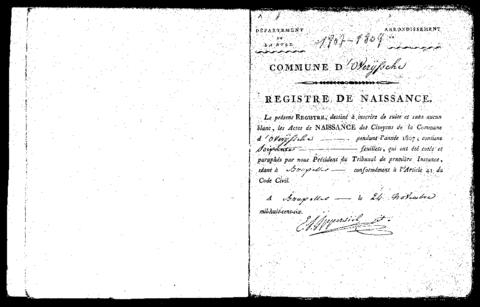 DÉPARTEMENT
DE
LA DYLE
ARRONDISSEMENT
1807-1808
COMMUNE D'Overijssche
REGISTRE DE NAISSANCE.
Le présent REGISTRE, destiné à inscrire de suite et sans aucun
blanc, les Actes de NAISSANCE des Citoyens de la Commune
d'Overijssche pendant l'année 1807, contient
feuillets, qui ont été cotés et
paraphés par nous Président du Tribunal de première Instance,
séant à Bruxelles conformément à l'Article 41 du
Code Civil.
A Bruxelles le 24 Novembre
mil-huit-cent-six.